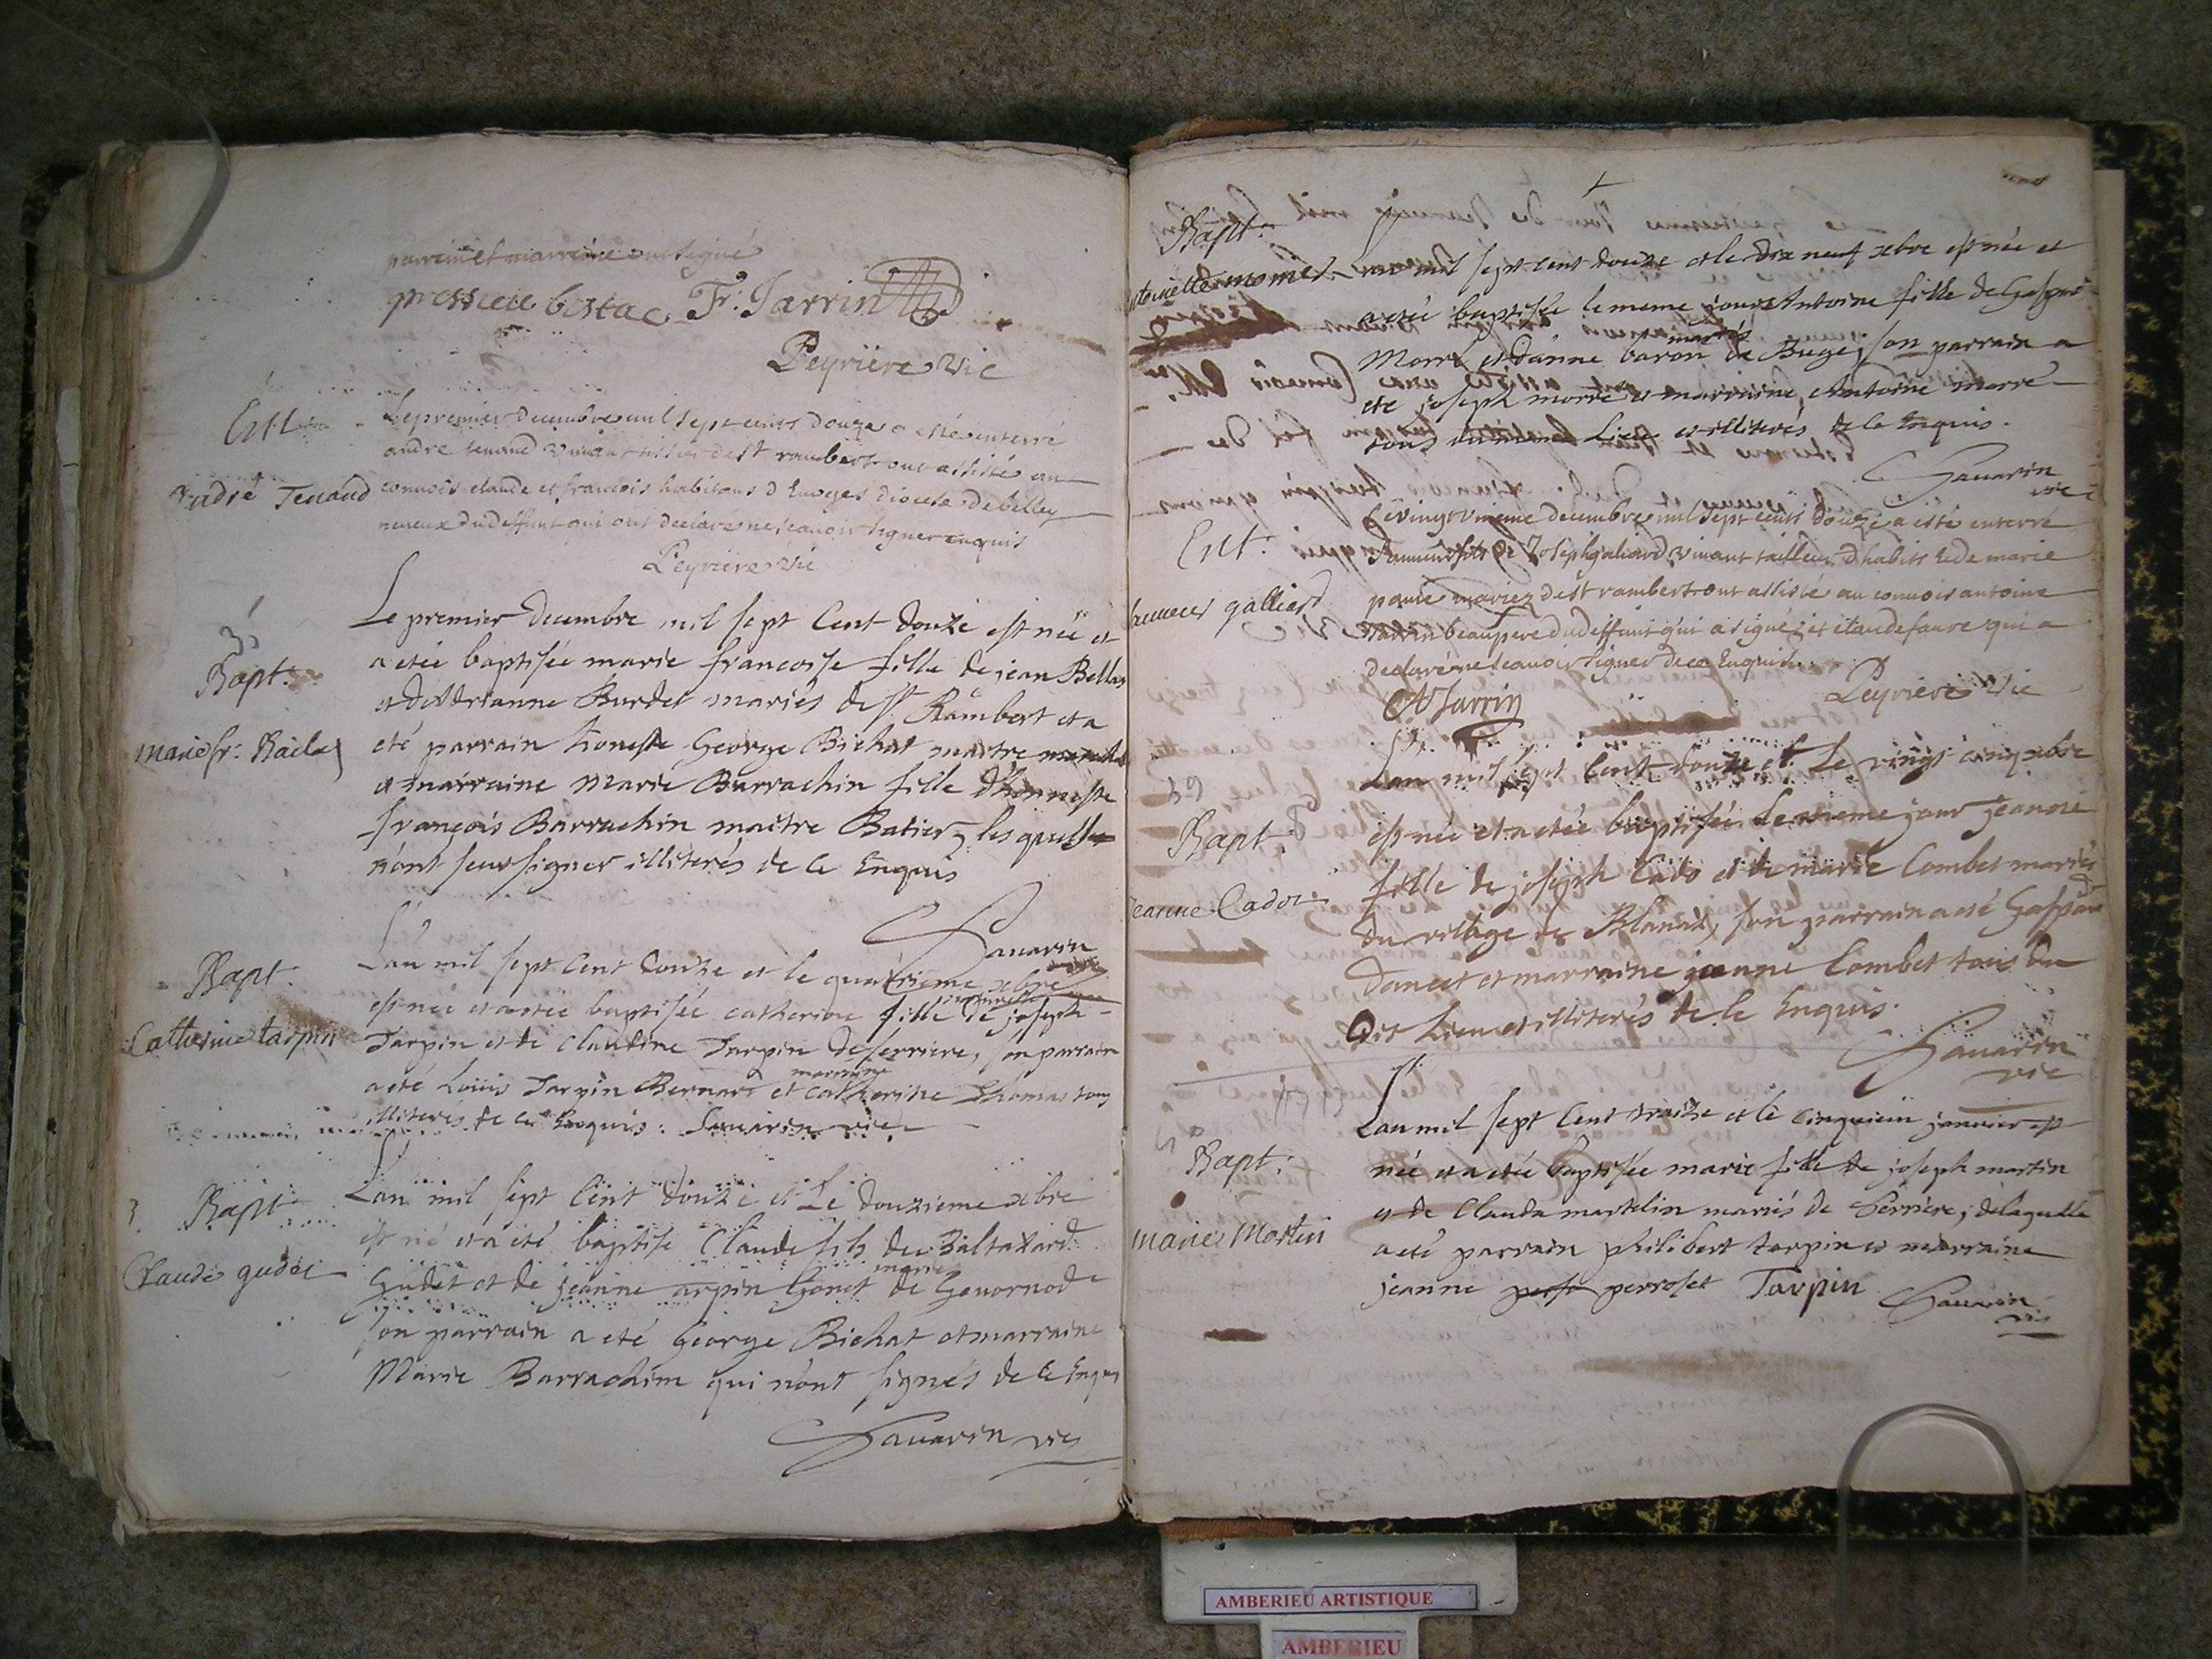 parrein et marreine ont signé
pressieu bestac Fr. Jarrin
Peyriere vic
Ent
Le premier decembre mil sept cents douze a esté enterré
andre tenand vivant de st rambert ont assisté au
andré Tenand
convois claude et francois habitans d Evoges diocese de belley
neveux du deffunt qui ont declare ne scavoir signer enquis
Peyriere vic
Le premier decembre mil sept Cent douze est née et
Bapt.
a etée baptisée marie francoise fille de jean Bellas
et d'Adrianne Burdet mariés de st Rambert et a
marie fr.
eté parrain honeste George Bichat maitre
et marraine Marie Barrachin fille d'honneste
françois Barrachin maitre Batier, les quels
n'ont seus signer illiterés de ce Enquis
Savarin
Bapt.
L'an mil sept Cent Douze et le quatrieme xbre
est née et a etée baptisée catherine fille de joseph
Catherine tarpin
Tarpin et de Claudine Tarpin de serriere, son parrain
marraine
a eté Louis Tarpin Bernard et catherine Thomas tous
illiteres de ce Enquis. Savarin vic
Bapt
Lan mil sept Cent douze et Le douzieme xbre
est né et a eté baptisé Claude fils de Baltazard
Claude gudet
mariés
Gudet et de jeanne arpin Gonet de Gouornod
son parrain a eté George Bichat et marraine
Marie Barrachim qui n'ont signés de ce Enquis
Savarin vic
Bapt.
an mil sept cent douze et le dix neuf xbre est née et
a etée baptisée le meme jour Antoine fille de Gaspar
mariés
Morre et d'anne baron de Buges, son parrain a
eté joseph morre et marraine Antoine marre
tous du meme Lieu et illiterés de ce Enquis.
Savarin
vic
Ent.
Le vingt unieme decembre mil sept cents douze a esté enterré
fils de Joseph galiard vivant tailleur d'habits et de marie
galliard
mariez de st rambert ont assisté au convois antoine
Jarrin beaupere du deffunt qui a signé et claude faure qui a
declaré ne scavoir signer de ce Enquis
Jarrin
Peyriere vic
Lan mil sept Cent douze et Le vingt cinq xbre
Bapt.
est née et a etée baptisée Le meme jour jeanne
fille de joseph Cado et de marie Combet mariés
Jeanne Cado
du village de Blanaz, son parrain a eté Gaspard
Doncet et marraine jeanne Combet tous du
Dit Lieu et illiterés de ce Enquis.
Savarin
vic
Lan mil sept Cent traize et le Cinquieme janvier est
Bapt.
née et a etée baptisée marie fille de joseph martin
et de Clauda martelin mariés de serriere, de laquelle
marie Martin
a eté parrain philibert tarpin et marraine
jeanne perrosset Tarpin
Savarin
vic
AMBERIEU ARTISTIQUE
AMBERIEU